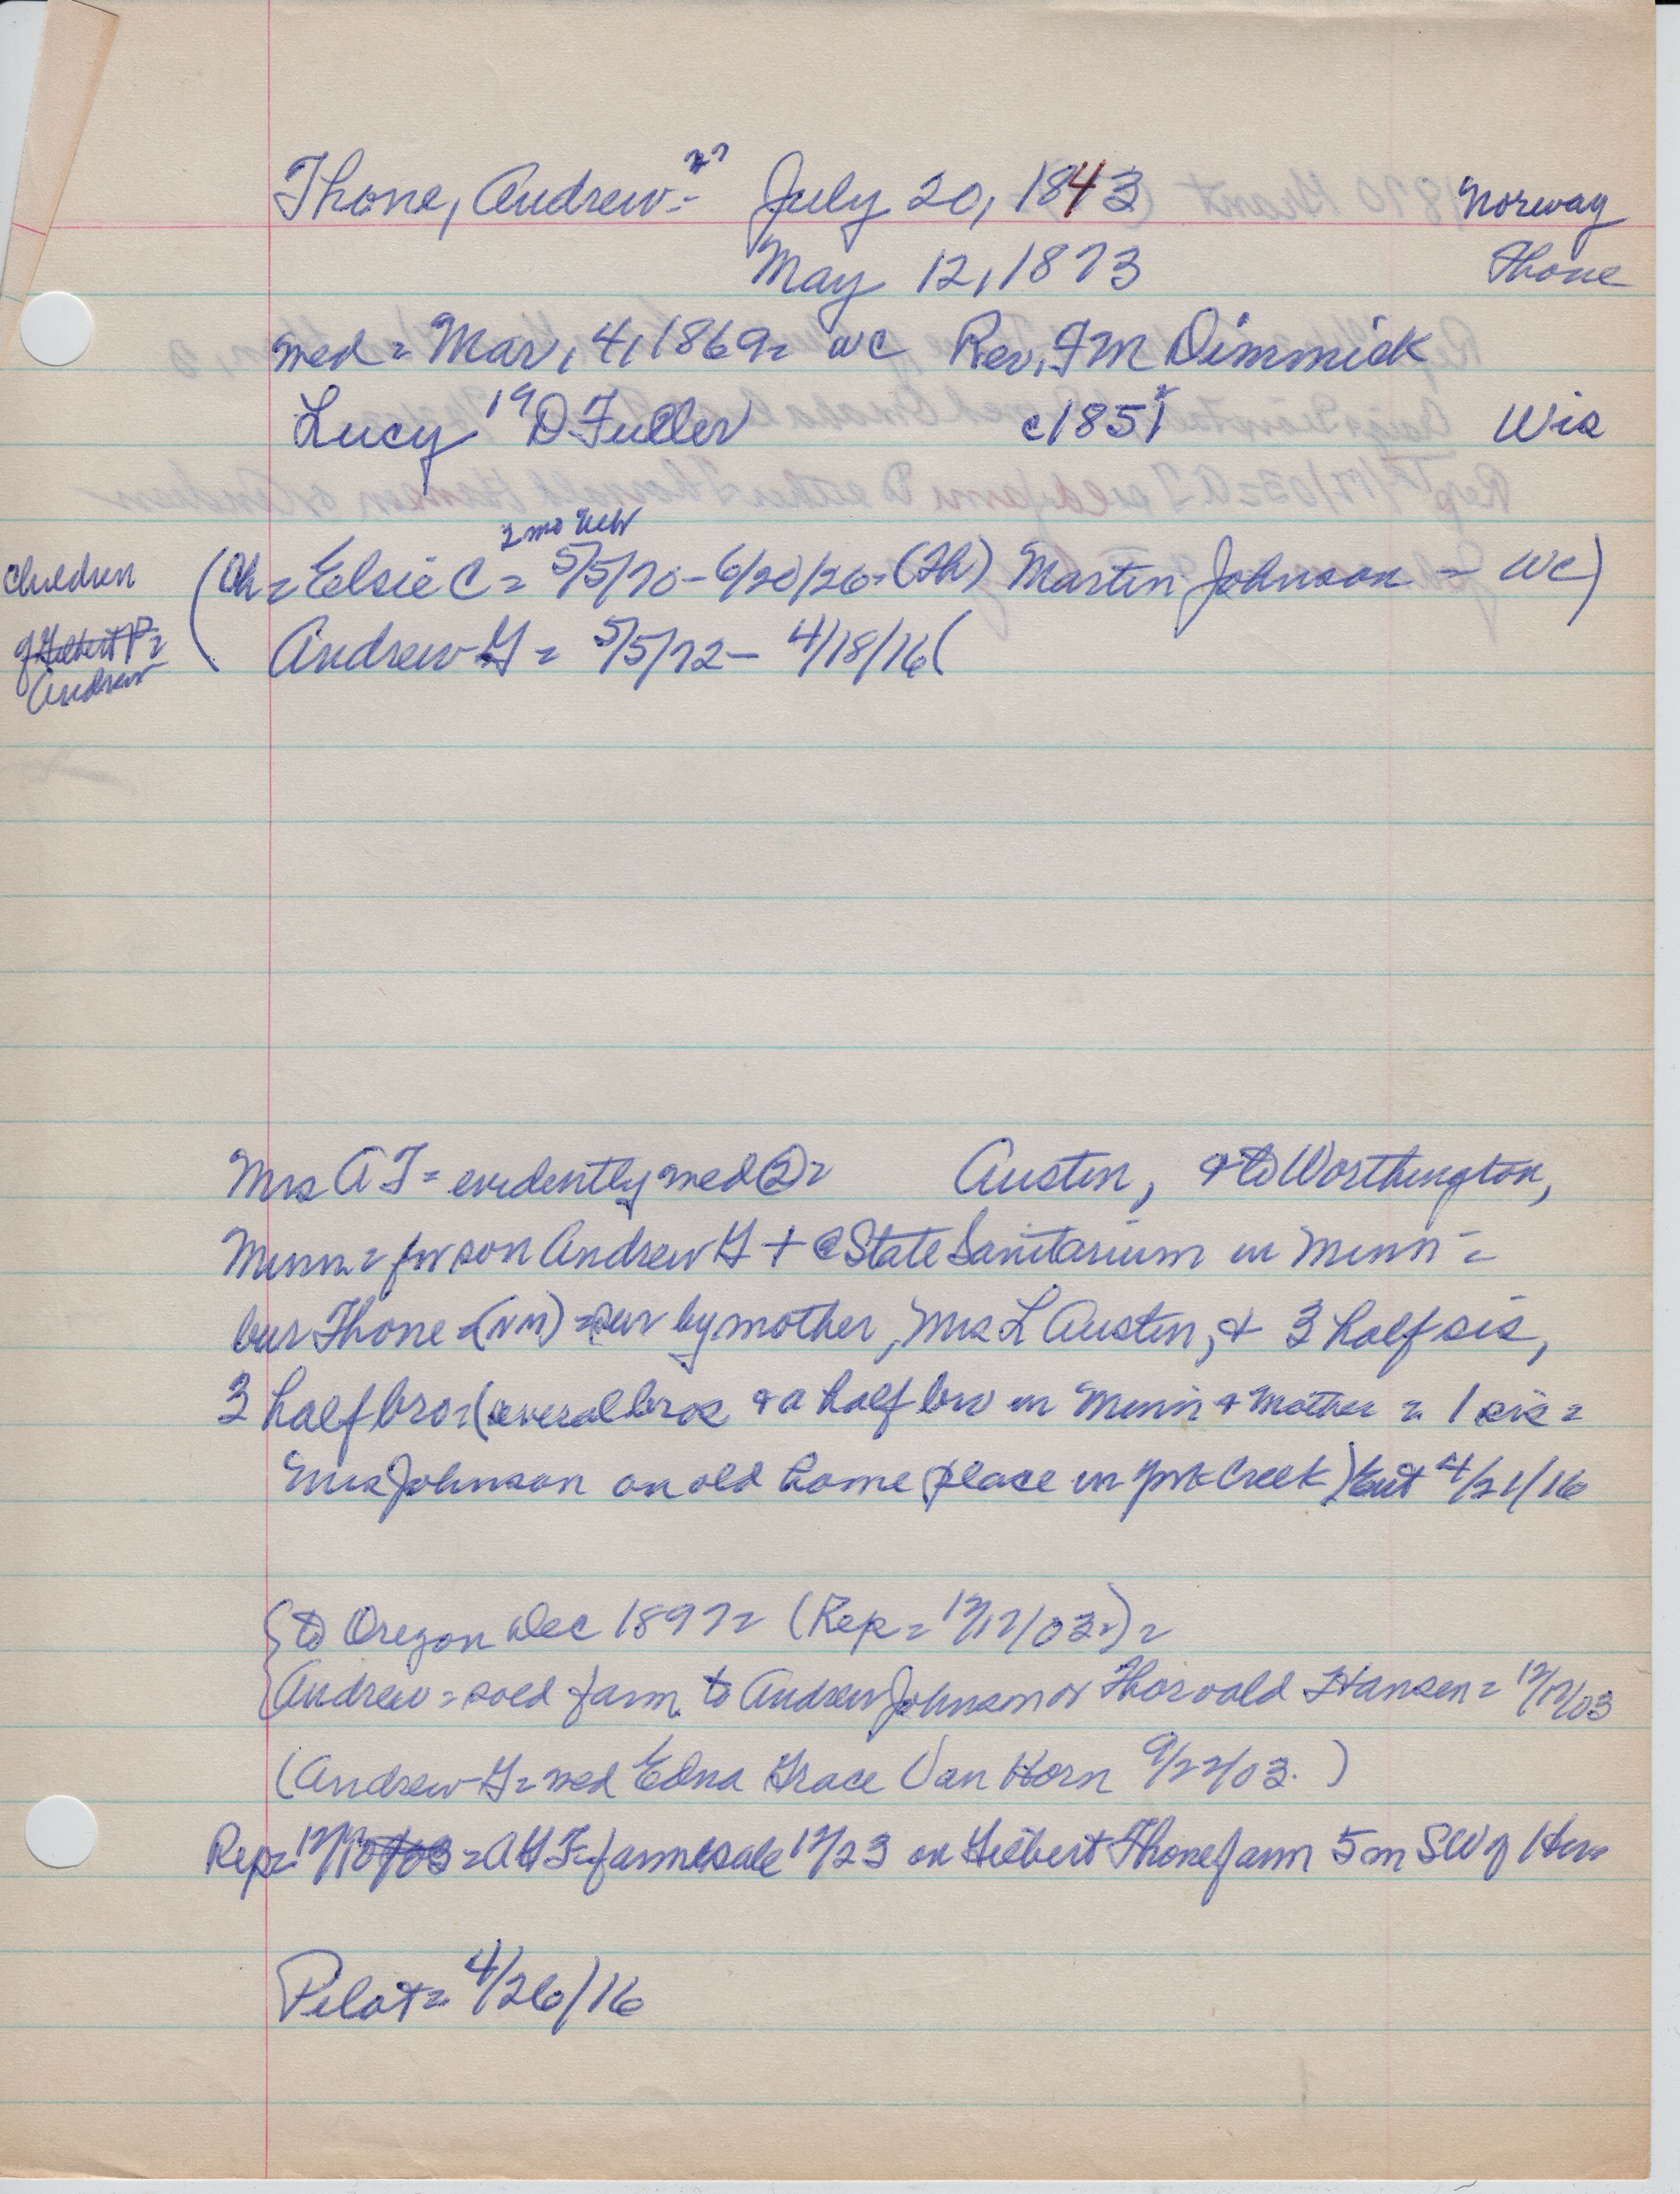 27
Thone, Andrew = July 20, 1843 Norway
May 12, 1873 Thone
med = Mar, 4, 1869 = wc Rev, FM Dimmick
Lucy 19 D Fuller c1851 Wis
2 mo Neb
children (Ch = Eelsie C = 5/5/70 - 6/20/26 = (Th) Martin Johnson = wc)
of Gilbert P =
Andrew G = 5/5/72 - 4/18/16 (
Andrew
Mrs A T = evidently med (2) = Austin, & to Worthington,
Minn = for son Andrew G + @ State Sanitarium in Minn =
bur Thone = (nm) = sur by mother, Mrs L Austin, & 3 half sis,
3 half bro = (several bros & a half bro in Minn & Mother = 1 sis =
Mrs Johnson on old home place in York Creek) Ent 4/21/16
(to Oregon Dec 1897 = (Rep = 12/17/03 =) =
Andrew = sold farm to Andrew Johnson or Thorvald Hansen = 12/17/03
(Andrew G = med Edna Grace Van Horn 9/22/03. )
Rep = = A G T = farm sale 12/23 on Gilbert Thone farm 5 m SW of Her
Pilot = 4/26/16